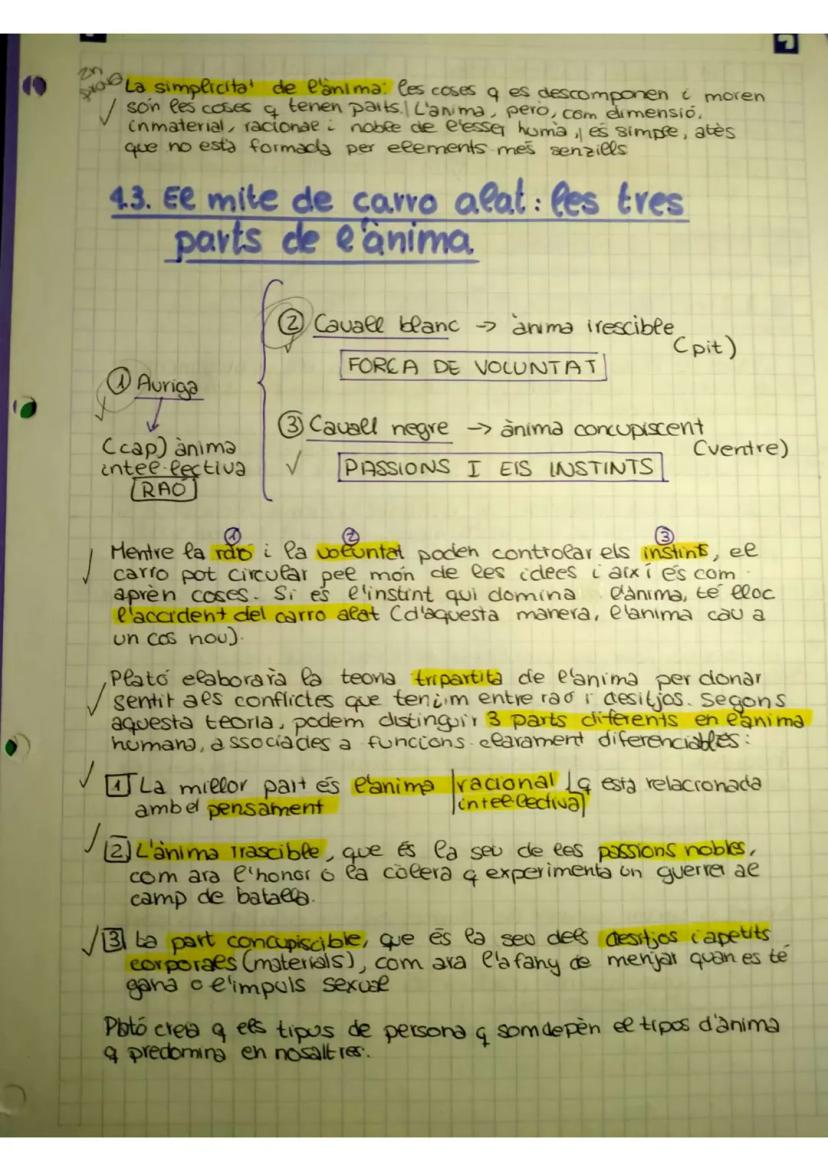 La simplicitat de l'ànima: les coses q es descomponen i moren
són les coses q tenen parts. L'anima, però, com dimensió,
inmaterial, racional i noble de l'esser humà, és simple, atès
que no està formada per elements més senzills
4.3. El mite de carro alat: les tres
parts de l'ànima
② Cavall blanc → ànima irescible
(pit)
FORCA DE VOLUNTAT
① Auriga
③ Cavall negre → ànima concupiscent
(ventre)
(cap) ànima
intel·lectiva
PASSIONS I ElS INSTINTS
RAÓ
① ② ③
Mentre la raó i la voluntat poden controlar els instints, el
carro pot circular pel món de les idees i així és com
aprèn coses. Si és l'instint qui domina l'ànima, té lloc
l'accident del carro alat (d'aquesta manera, l'ànima cau a
un cos nou).
Plató elaborarà la teoria tripartita de l'anima per donar
sentit als conflictes que tenim entre raó i desitjos. Segons
aquesta teoria, podem distinguir 3 parts diferents en l'ànima
humana, associades a funcions clarament diferenciables:
1 La millor part és l'ànima racional q està relacionada
intel·lectiva
amb el pensament
2 L'ànima irascible, que és la seu de les passions nobles,
com ara l'honor o la còlera q experimenta un guerrer al
camp de batalla.
3 La part concupiscible, que és la seu dels desitjos i apetits
corporals (materials), com ara l'afany de menjar quan es té
gana o l'impuls sexual
Plató creia q els tipus de persona q som depèn el tipos d'ànima
q predomina en nosaltres.